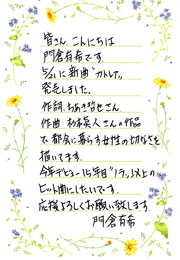 皆さん、こんにちは
門倉有希です。
5/21に新曲"カトレア"
発売しました。
作詞 ちあき哲也さん
作曲 杉本眞人さんの作品
で都会に暮らす女性の切なさを
描いてます。
今年デビュー15年目"ノラ"以上の
ヒット曲にしたいです。
応援よろしくお願い致します。
門倉有希